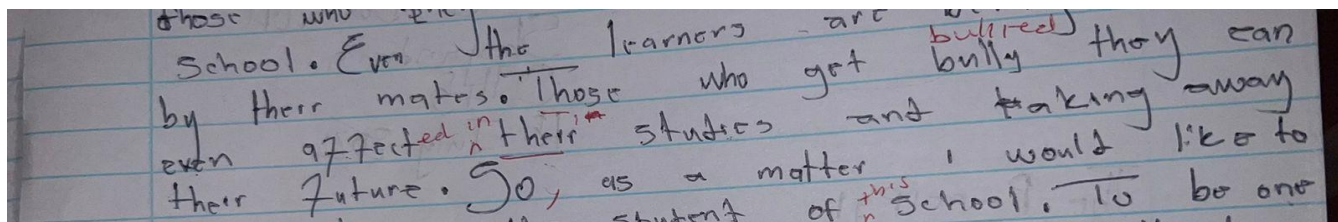 those who
School. Even the learners are
by their mates. Those who get bully bullied they can
even affected in their studies and taking away
their future. So, as a matter I would like to
student of this School. To be one